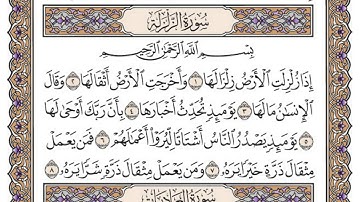 سُورَةُ الزَّلْزَلَةِ
بِسْمِ اللَّهِ الرَّحْمَٰنِ الرَّحِيمِ
إِذَا زُلْزِلَتِ الْأَرْضُ زِلْزَالَهَا ١ وَأَخْرَجَتِ الْأَرْضُ أَثْقَالَهَا ٢ وَقَالَ
الْإِنسَٰنُ مَا لَهَا ٣ يَوْمَئِذٍ تُحَدِّثُ أَخْبَارَهَا ٤ بِأَنَّ رَبَّكَ أَوْحَىٰ لَهَا
٥ يَوْمَئِذٍ يَصْدُرُ النَّاسُ أَشْتَاتًا لِّيُرَوْا أَعْمَٰلَهُمْ ٦ فَمَن يَعْمَلْ
مِثْقَالَ ذَرَّةٍ خَيْرًا يَرَهُ ٧ وَمَن يَعْمَلْ مِثْقَالَ ذَرَّةٍ شَرًّا يَرَهُ ٨
سُورَةُ الْعَادِيَاتِ